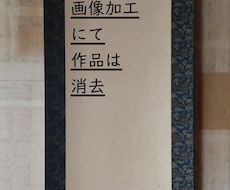 画像加工
にて
作品は
消去